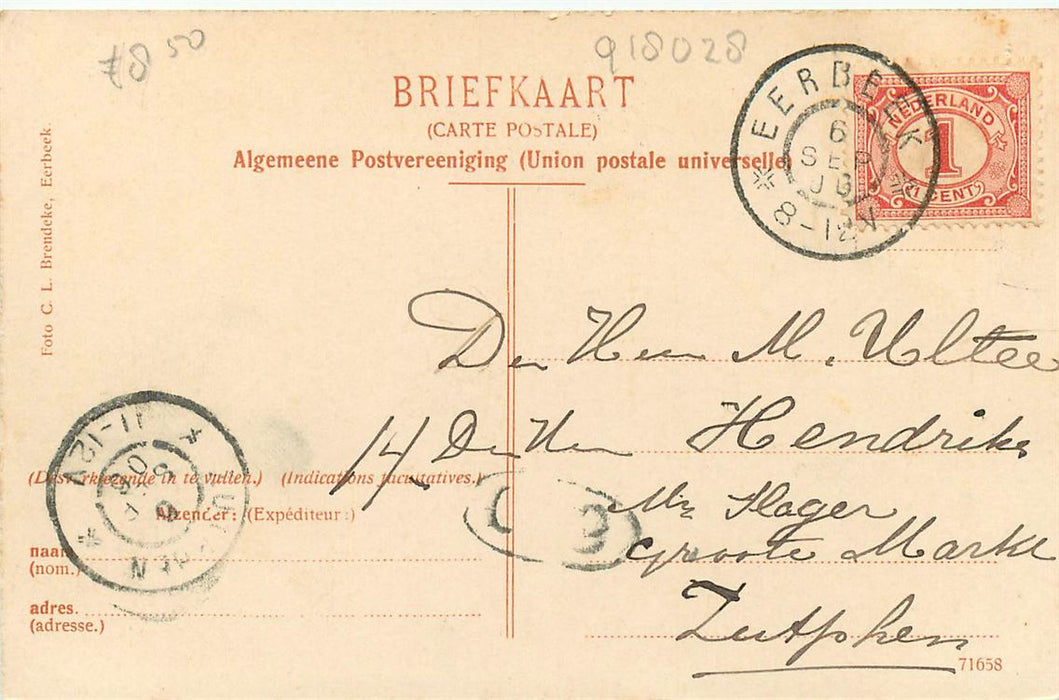 f8 50
918028
BRIEFKAART
(CARTE POSTALE)
Algemeene Postvereeniging (Union postale universelle)
EERBEEK
6
SEP
8-12V
NEDERLAND
1
1 CENT
Foto C. L. Brendeke, Eerbeek.
Den Heer M. Ultee
Den Heer Hendriks
Mr Slager
groote Markt
Zutphen
11-12V
(Indications facultatives.)
Afzender: (Expéditeur:)
naam
(nom.)
adres.
(adresse.)
71658